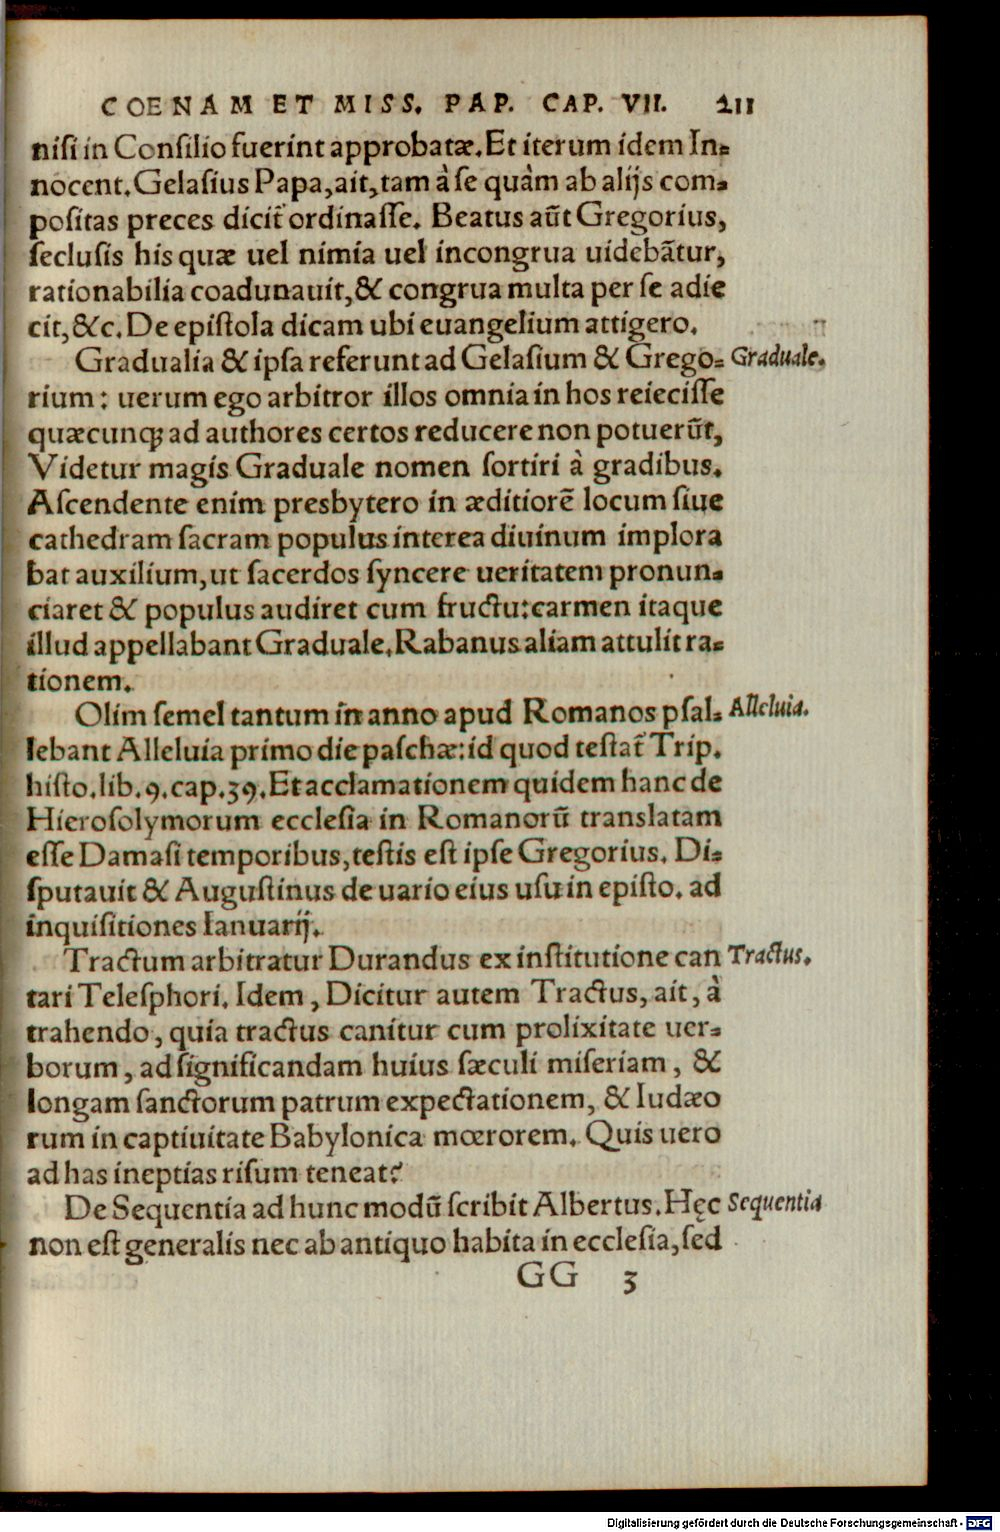 COENAM ET MISS. PAP. CAP. VII. 211
niſi in Conſilio fuerint approbatæ. Et iterum idem In⸗
nocent. Gelaſius Papa, ait, tam à ſe quàm ab alijs com⸗
poſitas preces dicit᷑ ordinaſſe. Beatus aūt Gregorius,
ſecluſis his quæ uel nimia uel incongrua uidebātur,
rationabilia coadunauit, & congrua multa per ſe adie
cit, &c. De epiſtola dicam ubi euangelium attigero.
Gradualia & ipſa referunt ad Gelaſium & Grego⸗ Graduale.
rium: uerum ego arbitror illos omnia in hos reieciſſe
quæcunq; ad authores certos reducere non potuerūt,
Videtur magis Graduale nomen ſortiri à gradibus.
Aſcendente enim presbytero in æditiorē locum ſiue
cathedram ſacram populus interea diuinum implora
bat auxilium, ut ſacerdos ſyncere ueritatem pronun⸗
ciaret & populus audiret cum fructu: carmen itaque
illud appellabant Graduale. Rabanus aliam attulit ra⸗
tionem.
Olim ſemel tantum in anno apud Romanos pſal⸗ Alleluia.
lebant Alleluia primo die paſchæ: id quod teſtat᷑ Trip.
hiſto. lib. 9. cap. 39. Et acclamationem quidem hanc de
Hieroſolymorum eccleſia in Romanorū translatam
eſſe Damaſi temporibus, teſtis eſt ipſe Gregorius. Di⸗
ſputauit & Auguſtinus de uario eius uſu in epiſto. ad
inquiſitiones Ianuarij.
Tractum arbitratur Durandus ex inſtitutione can Tractus.
tari Teleſphori. Idem, Dicitur autem Tractus, ait, à
trahendo, quia tractus canitur cum prolixitate uer⸗
borum, ad ſignificandam huius ſæculi miſeriam, &
longam ſanctorum patrum expectationem, & Iudæo
rum in captiuitate Babylonica mœrorem. Quis uero
ad has ineptias riſum teneat?
De Sequentia ad hunc modū ſcribit Albertus. Hęc Sequentia
non eſt generalis nec ab antiquo habita in eccleſia, ſed
GG 3
Digitalisierung gefördert durch die Deutsche Forschungsgemeinschaft - DFG